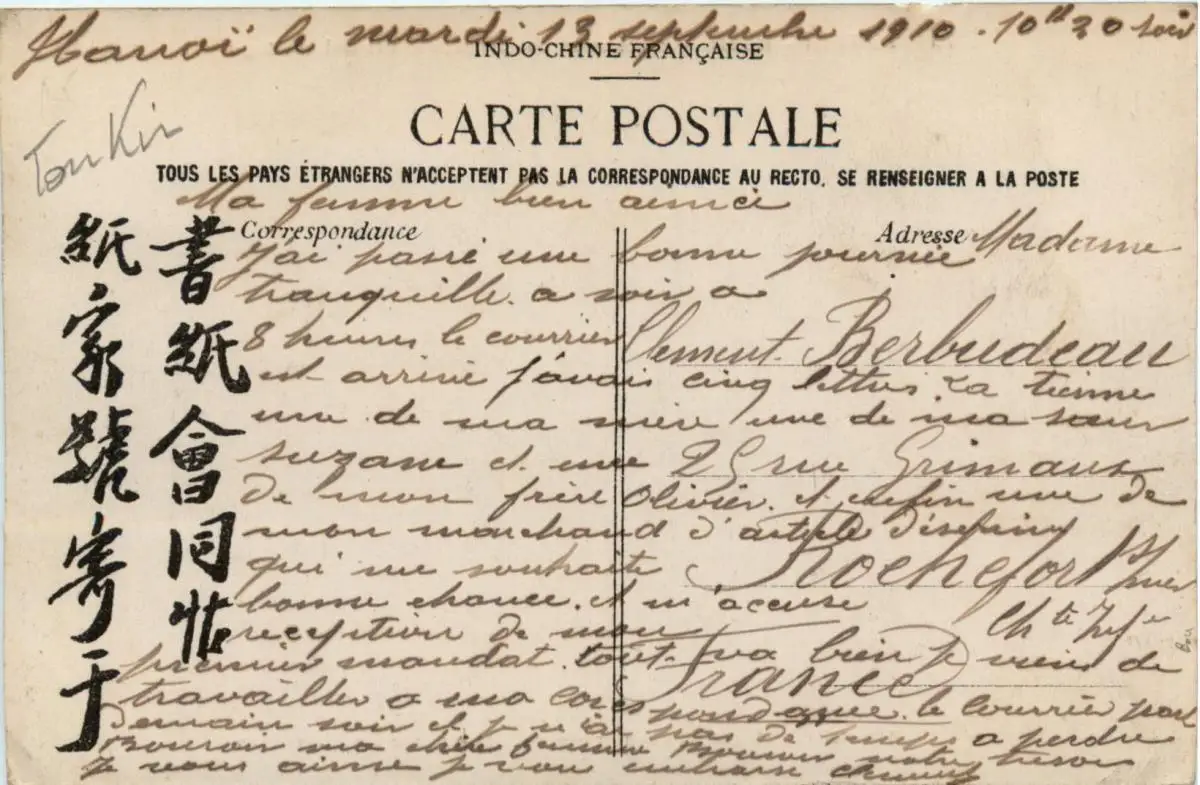 Hanoï le mardi 13 septembre 1910. 10h 30 soir
INDO-CHINE FRANÇAISE
CARTE POSTALE
Tonkin
TOUS LES PAYS ÉTRANGERS N'ACCEPTENT PAS LA CORRESPONDANCE AU RECTO. SE RENSEIGNER A LA POSTE
Ma femme bien aimée
Correspondance
Adresse
書紙會同帖
紙家號寄于
J'ai passé une bonne journée
tranquille. a soir a
8 heures le courrier
est arrivé j'avais cinq lettres. La tienne
une de ma mère une de ma sœur
suzane et une
de mon frère Olivier. et enfin une de
mon marchand d'article d'escrime
qui me souhaite
bonne chance. et m'accuse
reception de mon
premier mandat. tout va bien je viens de
travailler a ma correspondance. le courrier part
Demain soir et je n'ai pas de temps a perdre
Bonsoir ma chère femme Bonsoir notre tresor
Je vous aime je vous embrasse
Madame
Clement Berbudeau
25 rue Grimaux
Rochefort s/mer
Chte Infre
France